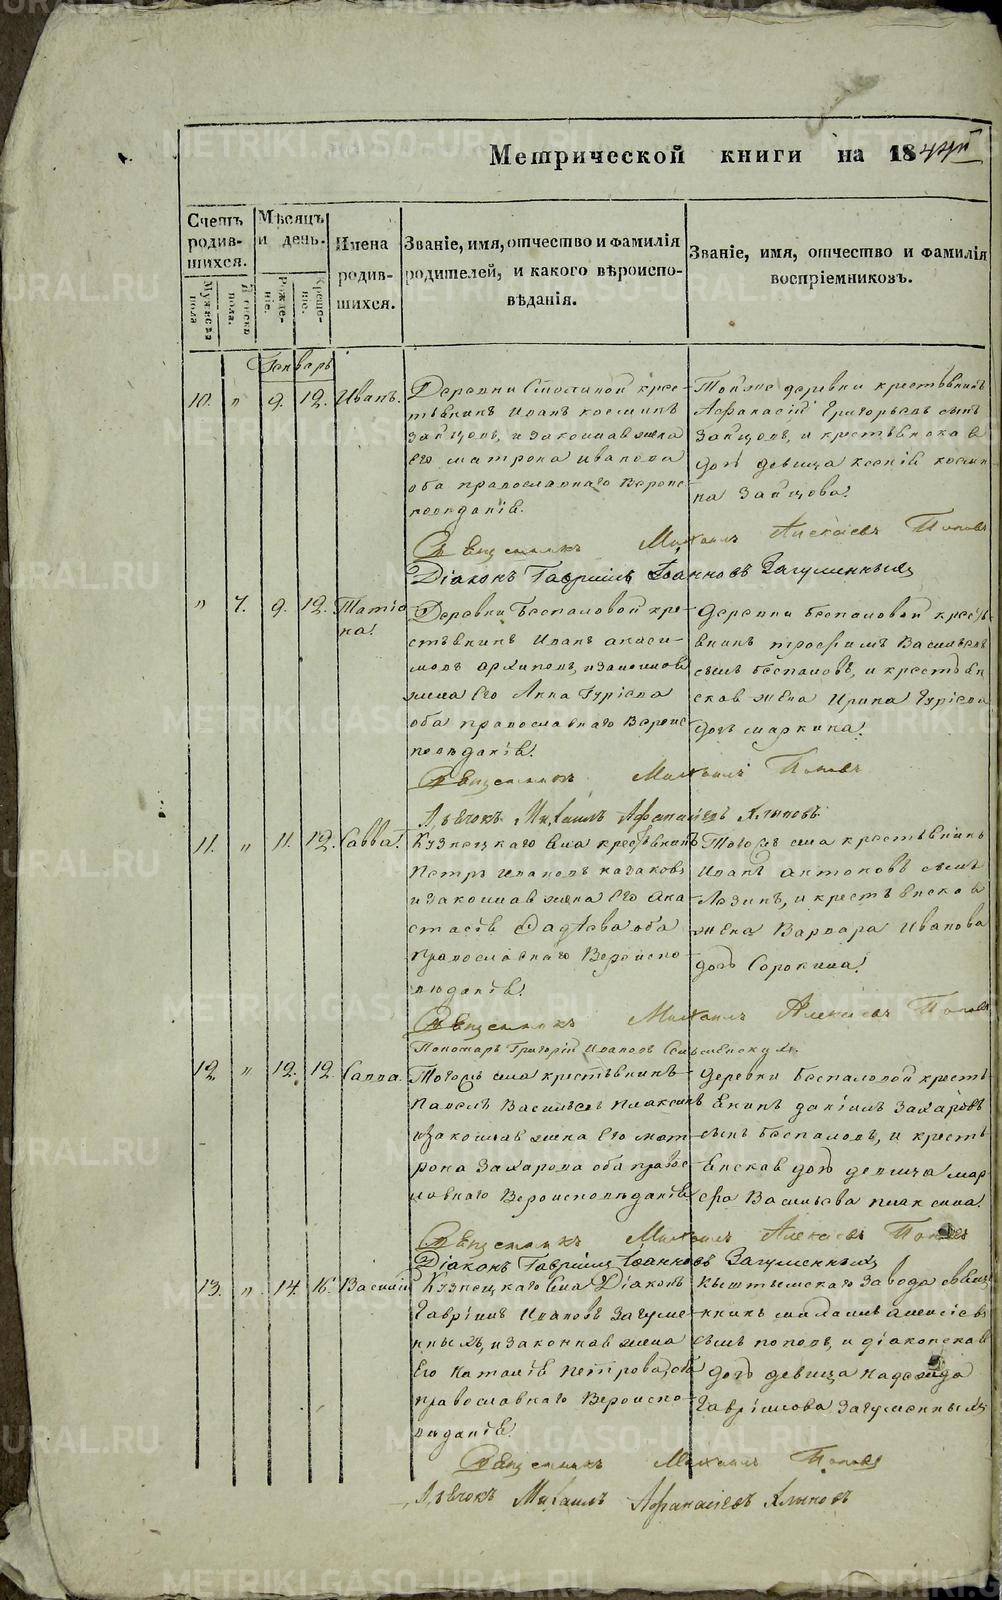 Метрической книги на 1844й
Счетъ родившихся.
Мѣсяцъ и день.
Имена родившихся.
Званіе, имя, отчество и фамилія
родителей, и какого вѣроиспо-
вѣданія.
Званіе, имя, отчество и фамилія
воспріемниковъ.
Мужеска пола
Женск. пола.
Рожденіе.
Крещеніе.
Генварь
10. " 9. 12. Иванъ.
Деревни
кре-
стьянинъ Иванъ Косминъ
Зайцовъ, и законная жена
Его Матрона Иванова
оба православнаго Вероис-
поведанія.
Тойже деревни крестьянинъ
Афанасій Григорьевъ сынъ
Зайцовъ, и крестьянская
дочь девица Ксенія Косми-
на Зайцова.
Священникъ Михаилъ Алексіевъ Поповъ
Діаконъ Гавріилъ Іоанновъ Загуменныхъ
" 7. 9. 12. Татіана.
Деревни Беспаловой кре-
стьянинъ Иванъ
Архиповъ, и законная
жена Его Анна Гуріева
оба православнаго Вероис-
поведанія.
Деревни Беспаловой кресть-
янинъ Трофимъ Васильевъ
сынъ Беспаловъ, и крестьян-
ская жена Ирина Гуріева
дочь Маркина.
Священникъ Михаилъ Поповъ
Дьячокъ Михаилъ Афанасіевъ Хлыновъ
11. " 11. 12. Савва.
Кузнецкаго села крестьянинъ
Петръ Ивановъ Казаковъ,
и законная жена Его Ана-
стасія Фадѣева оба
православнаго Вероиспо-
веданія.
Тогожъ села крестьянинъ
Иванъ Антоновъ сынъ
Лазинъ, и крестьянская
жена Варвара Иванова
дочь Сорокина.
Священникъ Михаилъ Алексіевъ Поповъ
Пономарь Григорій Ивановъ
12. " 12. 12. Савва.
Тогожъ села крестьянинъ
Павелъ Васильевъ Плаксинъ
и законная жена Его Мат-
рона Захарова оба правос-
лавнаго Вероисповеданія
Деревни Беспаловой кресть-
янинъ Даніилъ Захаровъ
сынъ Беспаловъ, и кресть-
янская дочь девица Мар-
фа Васильева Плаксина.
Священникъ Михаилъ Алексіевъ Поповъ
Діаконъ Гавріилъ Іоанновъ Загуменныхъ
13. " 14. 16. Василій
Кузнецкаго села Діаконъ
Гавріилъ Ивановъ Загуме-
нныхъ, и законная жена
Его Наталія Петрова, оба
православнаго Вероиспо-
веданія.
Кыштымскаго завода свяще-
нникъ Михаилъ Алексіевъ
сынъ Поповъ, и діаконская
дочь девица Надежда
Гавріилова Загуменныхъ
Священникъ Михаилъ Поповъ
Дьячокъ Михаилъ Афанасіевъ Хлыновъ
METRIKI.GASO-URAL.RU